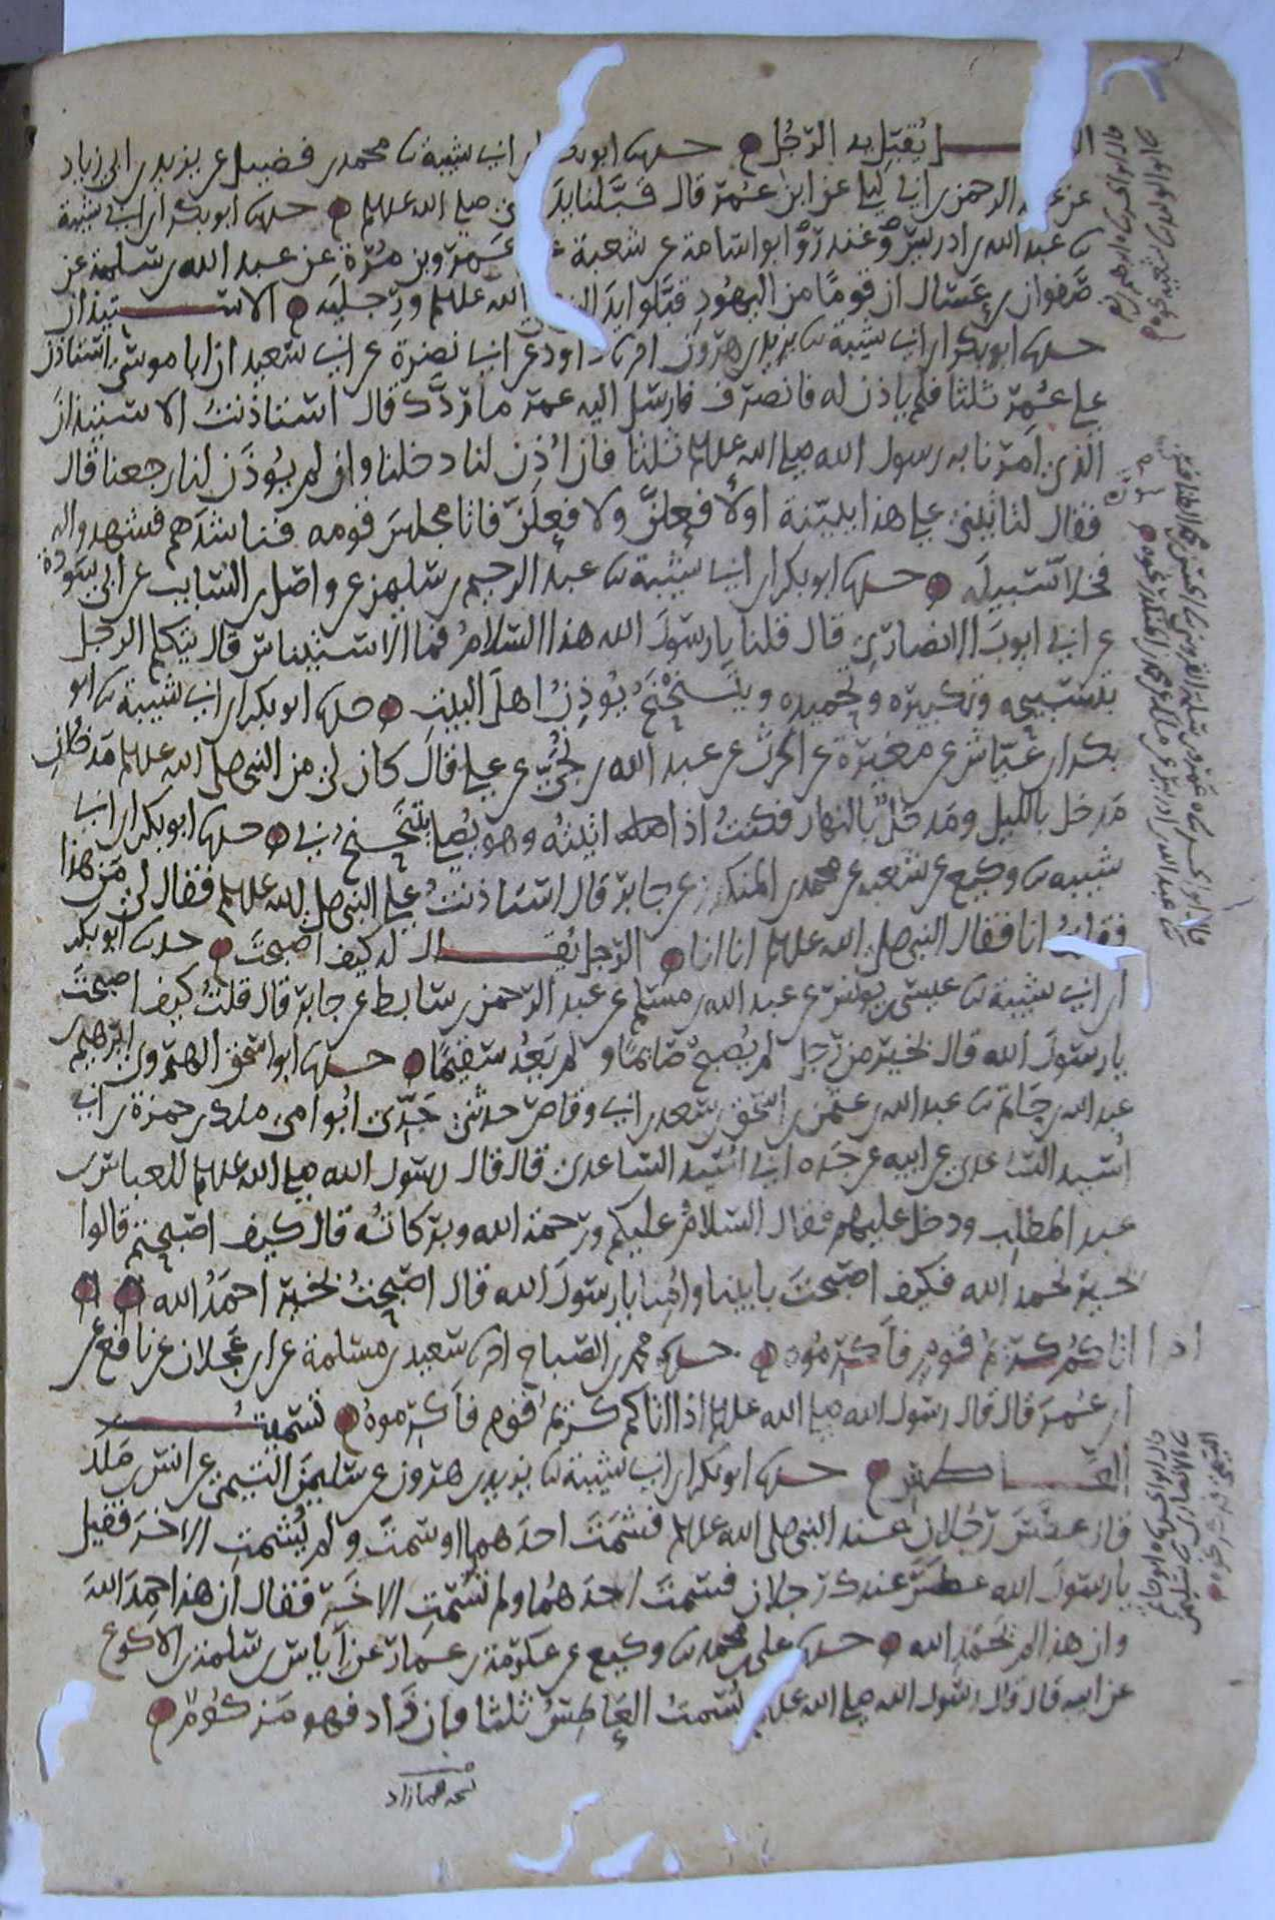 الرجل يُقبّل يد الرّجُل حدثنا ابو بكر ابن ابي شيبة ثنا محمد بن فضيل عن يزيد بن ابي زياد
عن عبد الرحمن بن ابي ليلى عن ابن عُمر قال قبَّلنا يدَ النبي صلى الله عليه وسلم حدثنا ابو بكر ابن ابي شيبة
ثنا عبد الله بن ادريس وغندر وابو اسامة عن شعبة عن عَمرو بن مُرّة عن عبد الله بن سلمة عن
صَفوان بن عَسّال ان قومًا من اليهُودِ قبّلوا يدَ النبي صلى الله عليه وسلم ورِجليَه الاستيذان
حدثنا ابو بكر ابن ابي شيبة ثنا يزيد بن هرون انا داود عن ابي نضرة عن ابي سعيد ان ابا موسى استاذن
على عُمر ثلثا فلم ياذن له فانصرف فارسل اليه عمر ما ردَّك قال استاذنتُ الاستيذانَ
الذي اَمَرنا به رسول الله صلى الله عليه وسلم ثلثا فان اُذِن لنا دخلنا وان لم يُوذَن لنا رجعنا قال
فقال لتاتينّي على هذا ببيّنة او لافعلنَّ ولافعلنّ فاتا مجلسَ قومه فناشدَهم فشهدوا له
فخلا سبيلَه حدثنا ابو بكر ابن ابي شيبة ثنا عبد الرحيم بن سليمن عن واصل بن السايب عن ابي سَوْدة
عن ابي ايوبَ الانصاري قال قلنا يا رسولَ الله هذا السلامُ فما الاستيناسُ قال يتكلم الرجل
بتسبيحه وتكبيره وتحميده ويتنحْنحُ يُوذِنُ اهلَ البيت حدثنا ابو بكر ابن ابي شيبة ثنا ابو
بكر ابن عيّاش عن مغيرة عن الحرث عن عبد الله بن نُجَيّ عن علي قال كان لي من النبي صلى الله عليه وسلم مَدخلانِ
مَدخل بالليل ومَدخلٌ بالنهار فكنتُ اذا اتيتُه وهو يُصلي يتنحنحُ لي حدثنا ابو بكر ابن ابي
شيبة ثنا وكيع عن شعبة عن محمد بن المنكدر عن جابر قال استاذنتُ على النبي صلى الله عليه وسلم فقال لي مَن هذا
فقلتُ انا فقال النبي صلى الله عليه وسلم انا انا الرجل يُقـال له كيف اصبحتَ حدثنا ابو بكر
ابن ابي شيبة ثنا عيسى بن يونس عن عبد الله بن مسلم عن عبد الرحمن بن سابط عن جابر قال قلتُ كيف اصبحتَ
يا رسولَ الله قال بخيرٍ من رجل لم يُصبح صائمًا ولم يَعُد سقيمًا حدثنا ابو اسحق الهروي ابرهيم بن
عبد الله بن حَاتم ثنا عبد الله بن عثمن بن اسحق بن سعد بن ابي وقاص حدثني جَدّي ابُو امي مالك بن حمزة بن ابي
اُسَيد الساعدي عن ابيه عن جَده ابي اُسَيد الساعدي قال قال رسول الله صلى الله عليه وسلم للعباس بن
عبد المطلب ودخل عليهم فقال السّلامُ عليكم ورَحمة الله وبركاتُه قال كيف اصبَحتم قالوا
بخيرٍ نحمد الله فكيف اصبحتَ بابينا واُمِنا يا رسولَ الله قال اصبَحتُ بخير احمَدُ الله
اذا اتاكُم كرِيمُ قومٍ فأكرِمُوه حدثنا محمد بن الصباح انا سعيد بن مسلمة عن ابن عَجلان عن نافع عن
ابن عُمرَ قال قال رسول الله صلى الله عليه وسلم اذا اتاكم كرِيمُ قوم فاَكرِموهُ تشميتُ
العَـاطسِ حدثنا ابو بكر ابن ابي شيبة ثنا يزيد بن هرون عن سليمن التيمي عن انس بن مَلك
قال عطَسَ رَجُلان عند النبي صلى الله عليه وسلم فشمَتَ احدَهما او سمَّتَ ولم يُشمتِ الاخرَ فقيل
يا رسولَ الله عطسَ عندك رجلان فشمتَ احدَهُما ولم تشَمّتِ الاخَر فقال ان هذا حَمِدَ اللهَ
وان هذا لم يَحمدِ الله حدثنا علي بن محمد ثنا وكيع عن عكرمة بن عمار عن اِياس بن سلمة بن الاكوع
عن ابيه قال قال رسول الله صلى الله عليه وسلم يُشمتُ العَاطِسُ ثلثا فان زَاد فهو مَزكُومٌ